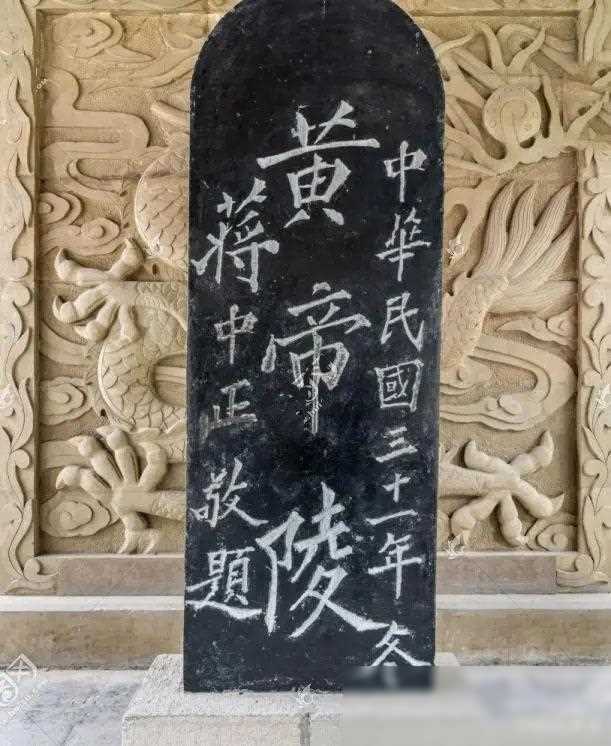 中華民國三十一年冬
黄帝陵
蒋中正敬題